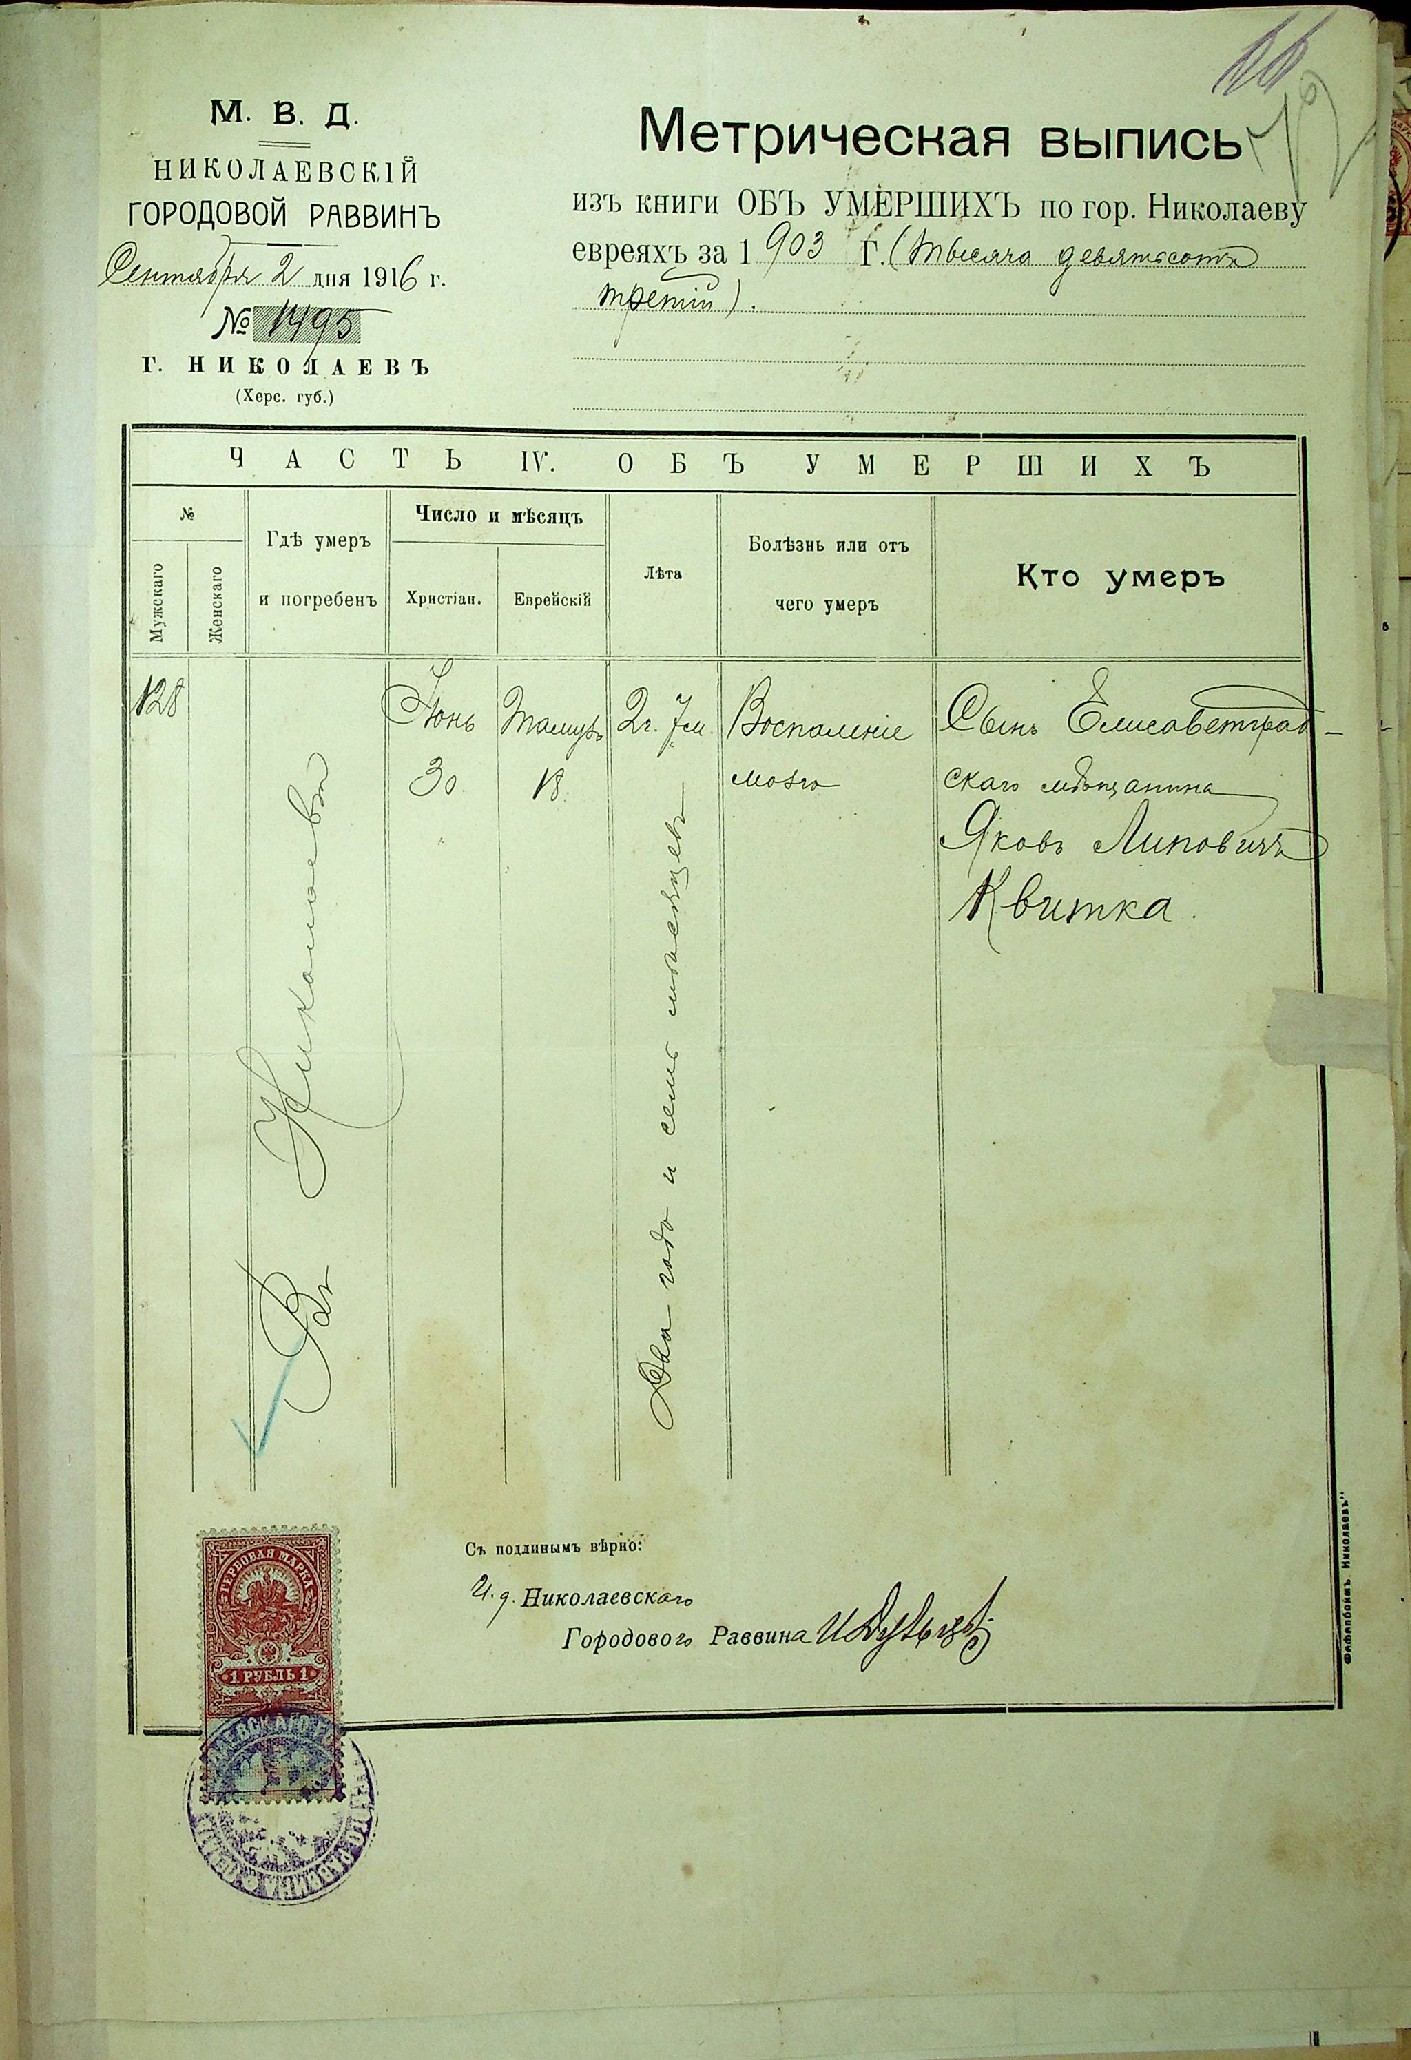 М. В. Д.
НИКОЛАЕВСКІЙ
ГОРОДОВОЙ РАВВИНЪ
Сентября 2 дня 1916 г.
№ 1495
Г. НИКОЛАЕВЪ
(Херс. губ.)
Метрическая выпись
изъ книги ОБЪ УМЕРШИХЪ по гор. Николаеву
евреяхъ за 1903 Г. (тысяча девятьсотъ
третій).
ЧАСТЬ IV. ОБЪ УМЕРШИХЪ
№
Мужскаго
Женскаго
Гдѣ умеръ
и погребенъ
Число и мѣсяцъ
Христіан.
Еврейскій
Лѣта
Болѣзнь или отъ
чего умеръ
Кто умеръ
128
Въ Николаевѣ
Іюнь
30
Тамуз
18
2г. 7м.
Два года и семь мѣсяцевъ
Воспаленіе
мозга
Сынъ Елисаветград-
скаго мѣщанина
Яковъ Липовичъ
Квитка.
Съ подлинымъ вѣрно:
И. д. Николаевскаго
Городового Раввина
ГЕРБОВАЯ МАРКА
1 РУБЛЬ 1
НИКОЛАЕВЪ"